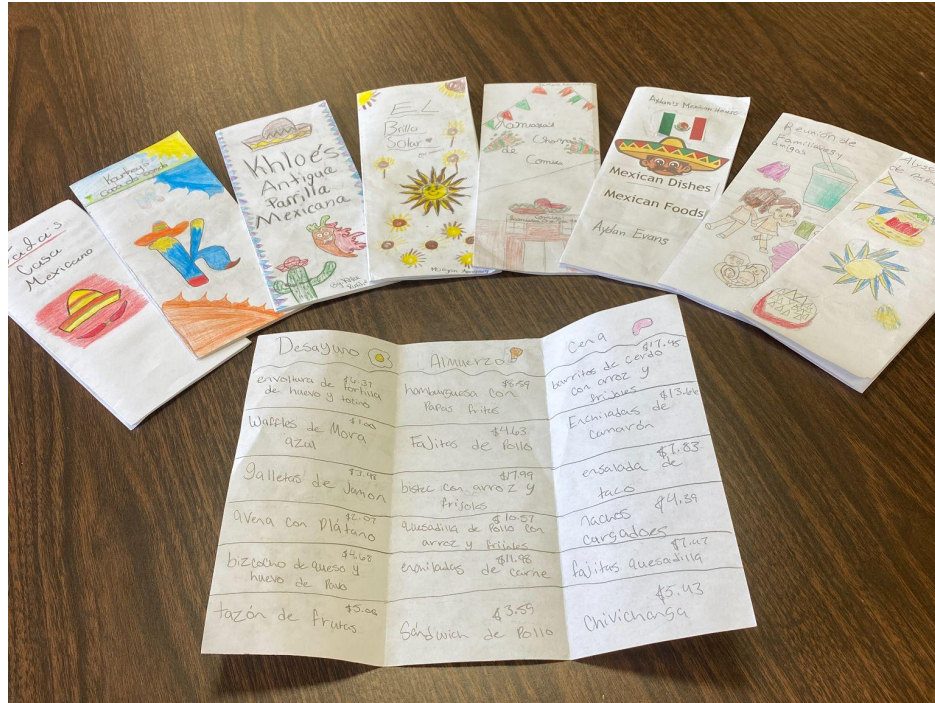 Casa
Mexicano
Khloé's
Antigua
Parrilla
Mexicana
EL
Brillo
Solar
de
Comida
Aydan's Mexican House
Mexican Dishes
Mexican Foods
Aydan Evans
Reunión de
Familiares y
amigos
Desayuno
envoltura de tortilla
$6.37
de huevo y tocino
$1.00
Waffles de Mora
azul
$3.48
galletas de Jamon
$2.07
avena con Plátano
$4.68
bizcocho de queso y
huevo de Pavo
$5.00
tazón de frutas
Almuerzo
$8.59
hamburguesa con
Papas fritas
$4.63
Fajitas de Pollo
$17.99
bistec con arroz y
frijoles
$10.57
quesadilla de Pollo con
arroz y frijoles
$11.98
enchiladas de carne
$3.59
Sándwich de Pollo
Cena
burritos de cerdo
con arroz y
frijoles
Enchiladas de
camarón
$7.83
ensalada de
taco
$4.39
nachos
cargadoes
fajitas quesadilla
$5.43
Chivichanga